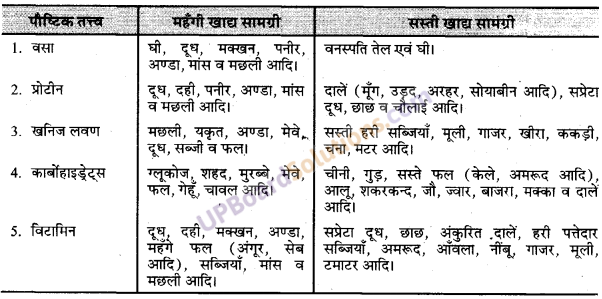 पौष्टिक तत्त्व	महँगी खाद्य सामग्री	सस्ती खाद्य सामग्री
1. वसा	घी, दूध, मक्खन, पनीर,	वनस्पति तेल एवं घी।
अण्डा, मांस व मछली आदि।
2. प्रोटीन	दूध, दही, पनीर, अण्डा, मांस	दालें (मूँग, उड़द, अरहर, सोयाबीन आदि), सप्रेटा
व मछली आदि।	दूध, छाछ व चौलाई आदि।
3. खनिज लवण	मछली, यकृत, अण्डा, मेवे,	सस्ती हरी सब्जियाँ, मूली, गाजर, खीरा, ककड़ी,
दूध, सब्जी व फल।	चना, मटर आदि।
4. कार्बोहाइड्रेट्स	ग्लूकोज, शहद, मुरब्बे, मेवे,	चीनी, गुड़, सस्ते फल (केले, अमरूद आदि),
फल, गेहूँ, चावल आदि।	आलू, शकरकन्द, जौ, ज्वार, बाजरा, मक्का व दालें
आदि।
5. विटामिन	दूध, दही, मक्खन, अण्डा,	सप्रेटा दूध, छाछ, अंकुरित दालें, हरी पत्तेदार
महँगे फल (अंगूर, सेब	सब्जियाँ, अमरूद, आँवला, नींबू, गाजर, मूली,
आदि), सब्जियाँ, मांस व	टमाटर आदि।
मछली आदि।
UPBoardSolutions.com